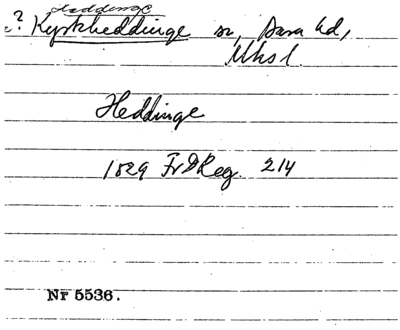 Heddinge
? Kyrkheddinge sn, Bara hd,
Mhsl.
Heddinge
1829 FrDReg. 214
Nr 5536.